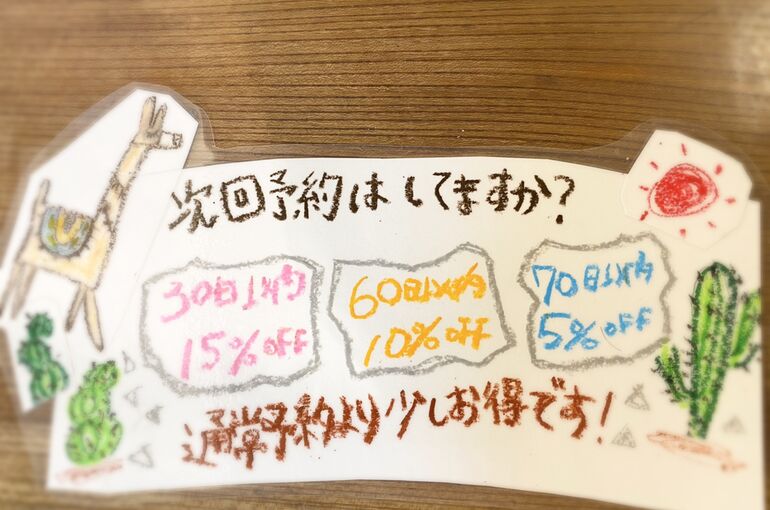 次回予約はしてますか?
30日以内
15%OFF
60日以内
10%OFF
70日以内
5%OFF
通常予約より少しお得です!